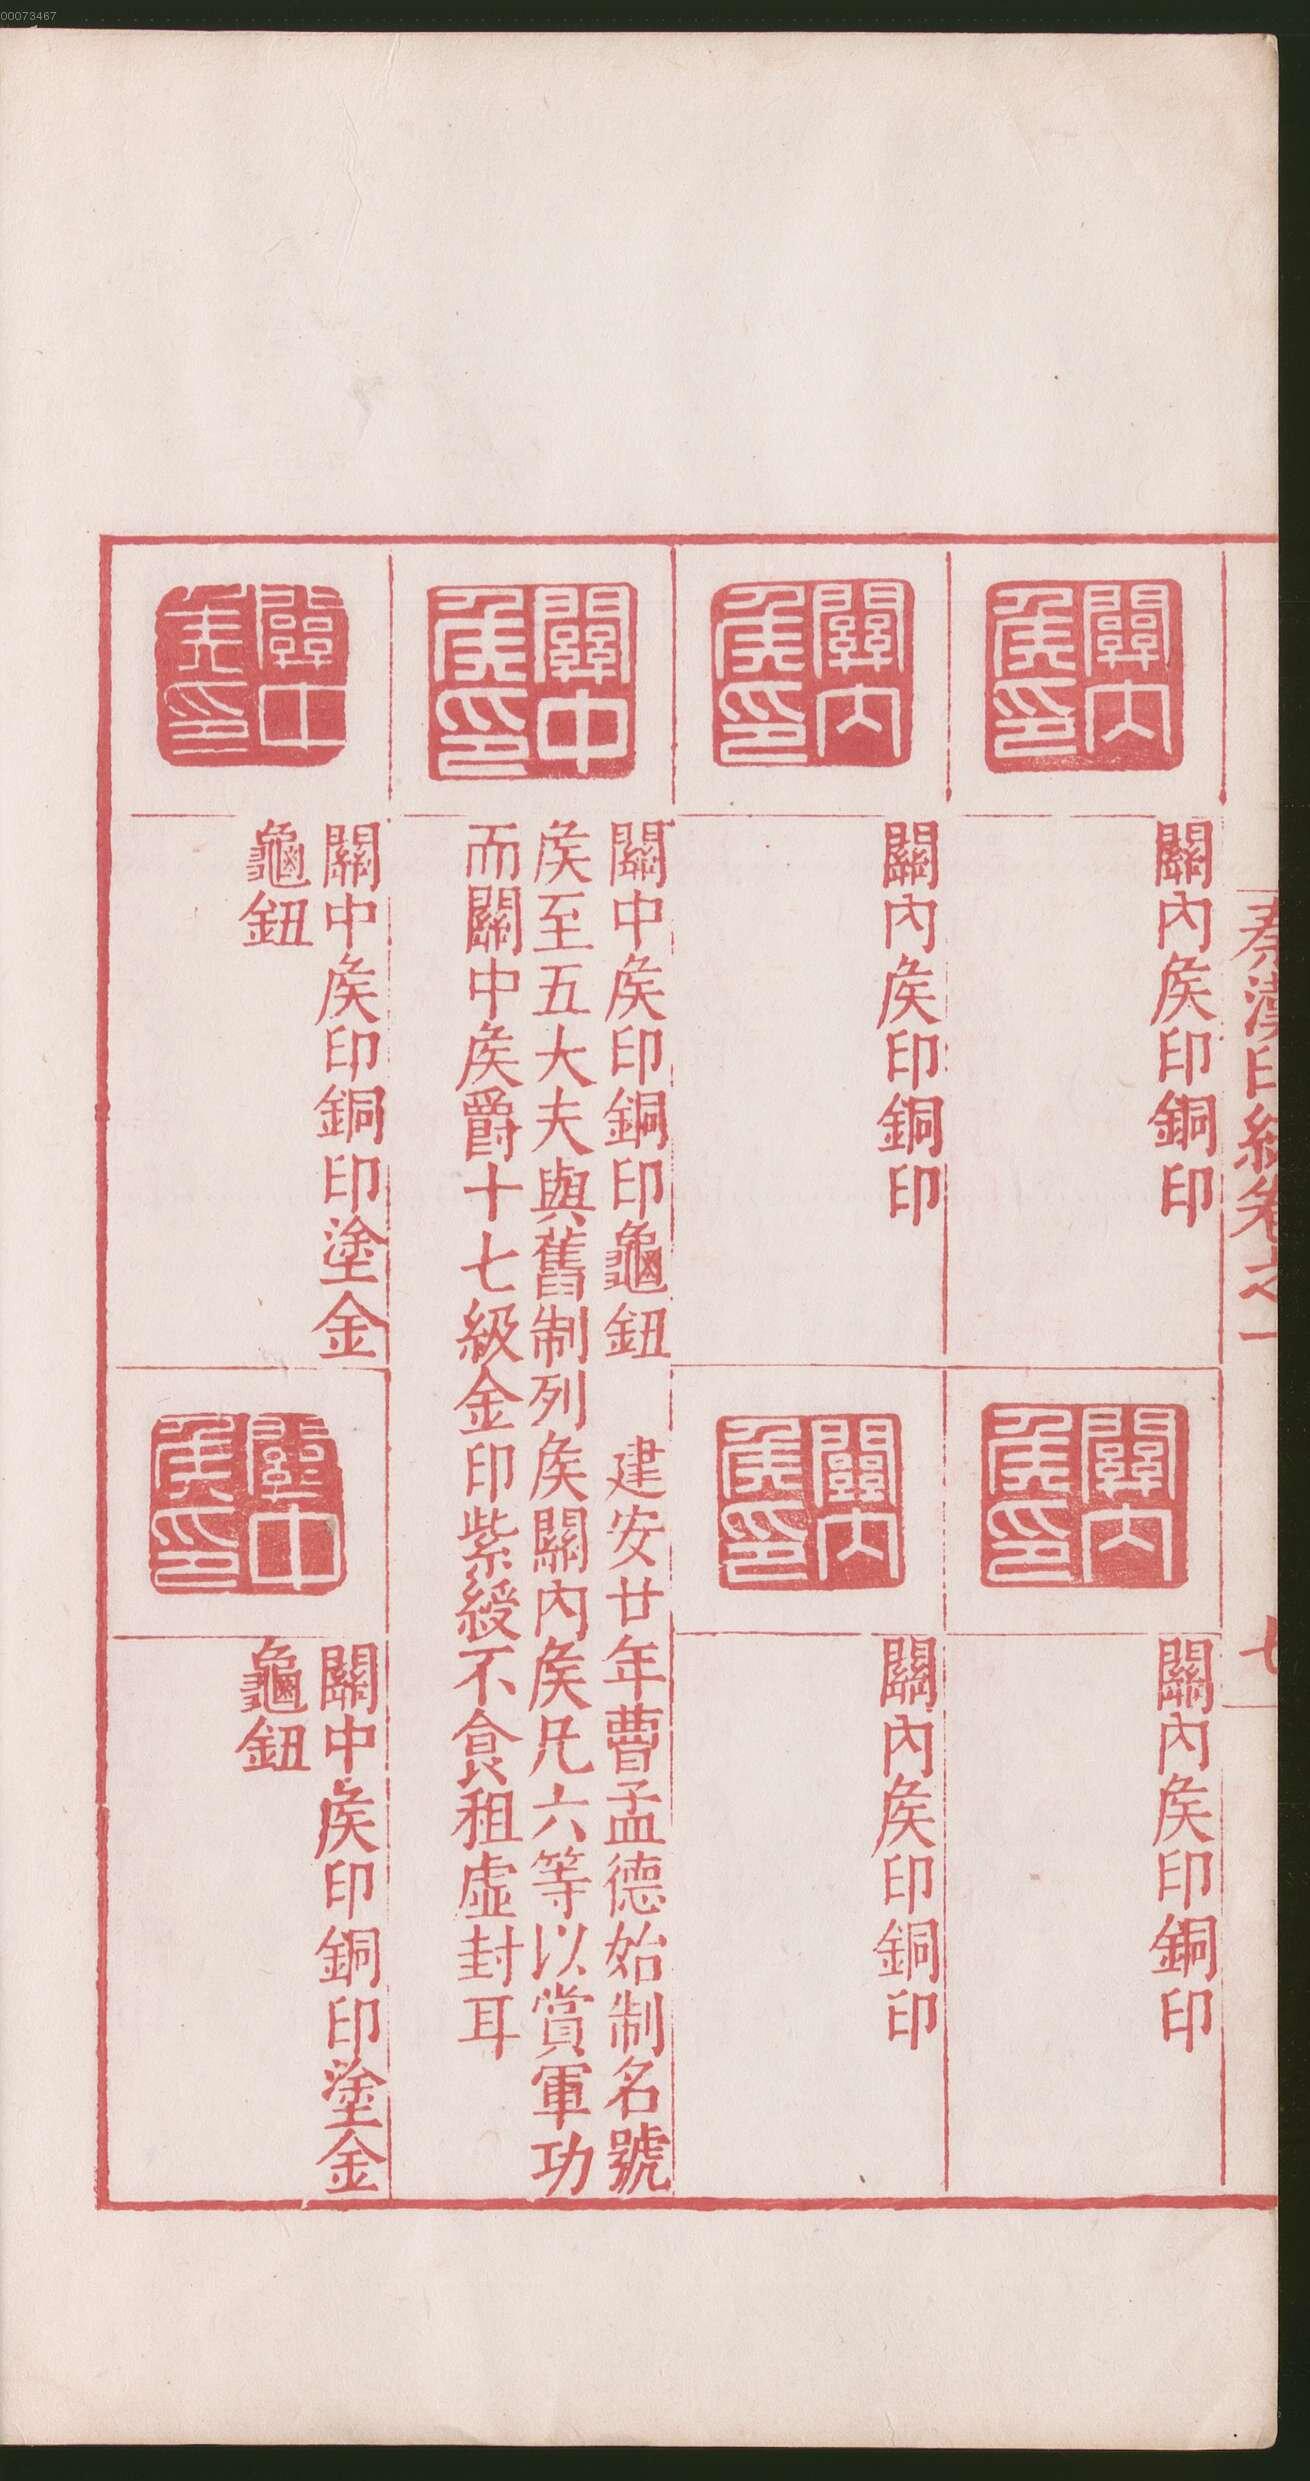 00073467
秦漢印統卷之一
七
關內侯印
關內矦印銅印
關內侯印
關內矦印銅印
關內侯印
關內矦印銅印
關內侯印
關內矦印銅印
關中侯印
關中矦印銅印龜鈕　建安廿年曹孟德始制名號
矦至五大夫與舊制列矦關內矦凡六等以賞軍功
而關中矦爵十七級金印紫綬不食租虛封耳
關中侯印
關中矦印銅印塗金
龜鈕
關中侯印
關中矦印銅印塗金
龜鈕